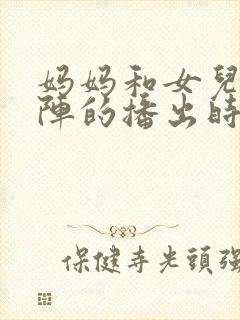 妈妈和女兒
陣的播出時
保健寺光頭強